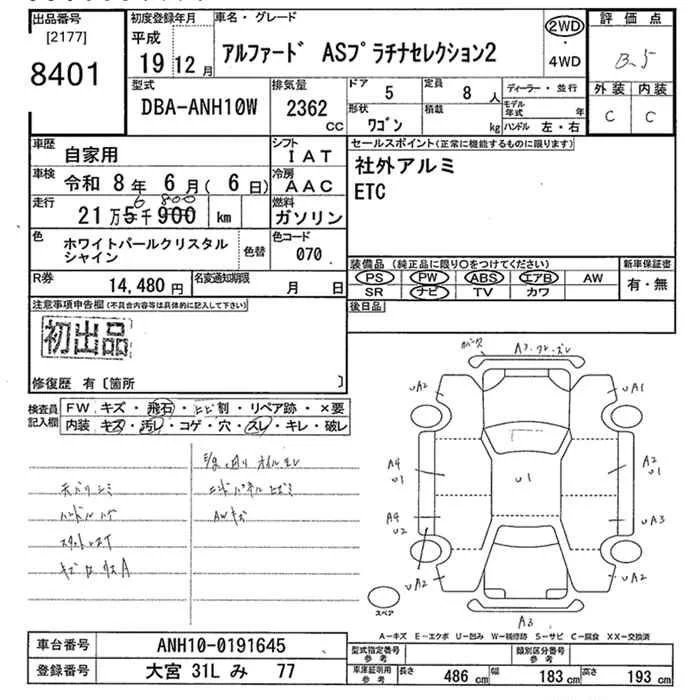 出品番号
[2177]
8401
初度登録年月
平成
19年12月
車名・グレード
アルファード ASプラチナセレクション2
2WD
・
4WD
評価点
B.5
外装 内装
C C
型式
DBA-ANH10W
排気量
2362
CC
ドア
5
定員
8人
形状
ワゴン
積載
kg
ディーラー・並行
モデル年式 年
ハンドル 左・右
車歴
自家用
シフト
IAT
車検
令和 8年 6月( 6日)
冷房
AAC
走行
21万5千900km
6 800
燃料
ガソリン
色
ホワイトパールクリスタル
シャイン
色替
色コード
070
R券
14,480円
名変通知期限
月 日
セールスポイント(正常に機能するものに限ります)
社外アルミ
ETC
装備品 (純正品に限り○をつけてください)
PS PW ABS エアB AW
SR ナビ TV カワ
新車保証書
有・無
後日品
注意事項申告欄(不具合内容等は具体的に記入して下さい)
初出品
修復歴 有〔箇所 〕
検査員記入欄
FW キズ・飛石・ヒビ割・リペア跡・×要
内装 キズ・汚レ・コゲ・穴・スレ・キレ・破レ
天バリシミ
ハンドルハゲ
AWキズ
A3
UA2
UA1
A4
U1
A2
U1
U1
A4
U2
UA3
UA2
UA2
A3
スペア
A-キズ E-エクボ U-凹み W-補修跡 S-サビ C-腐食 XX-交換済
車台番号
ANH10-0191645
登録番号
大宮 31L み 77
型式指定番号
参考
類別区分番号
参考
車庫証明用
参考
長さ
486 cm
幅
183 cm
高さ
193 cm